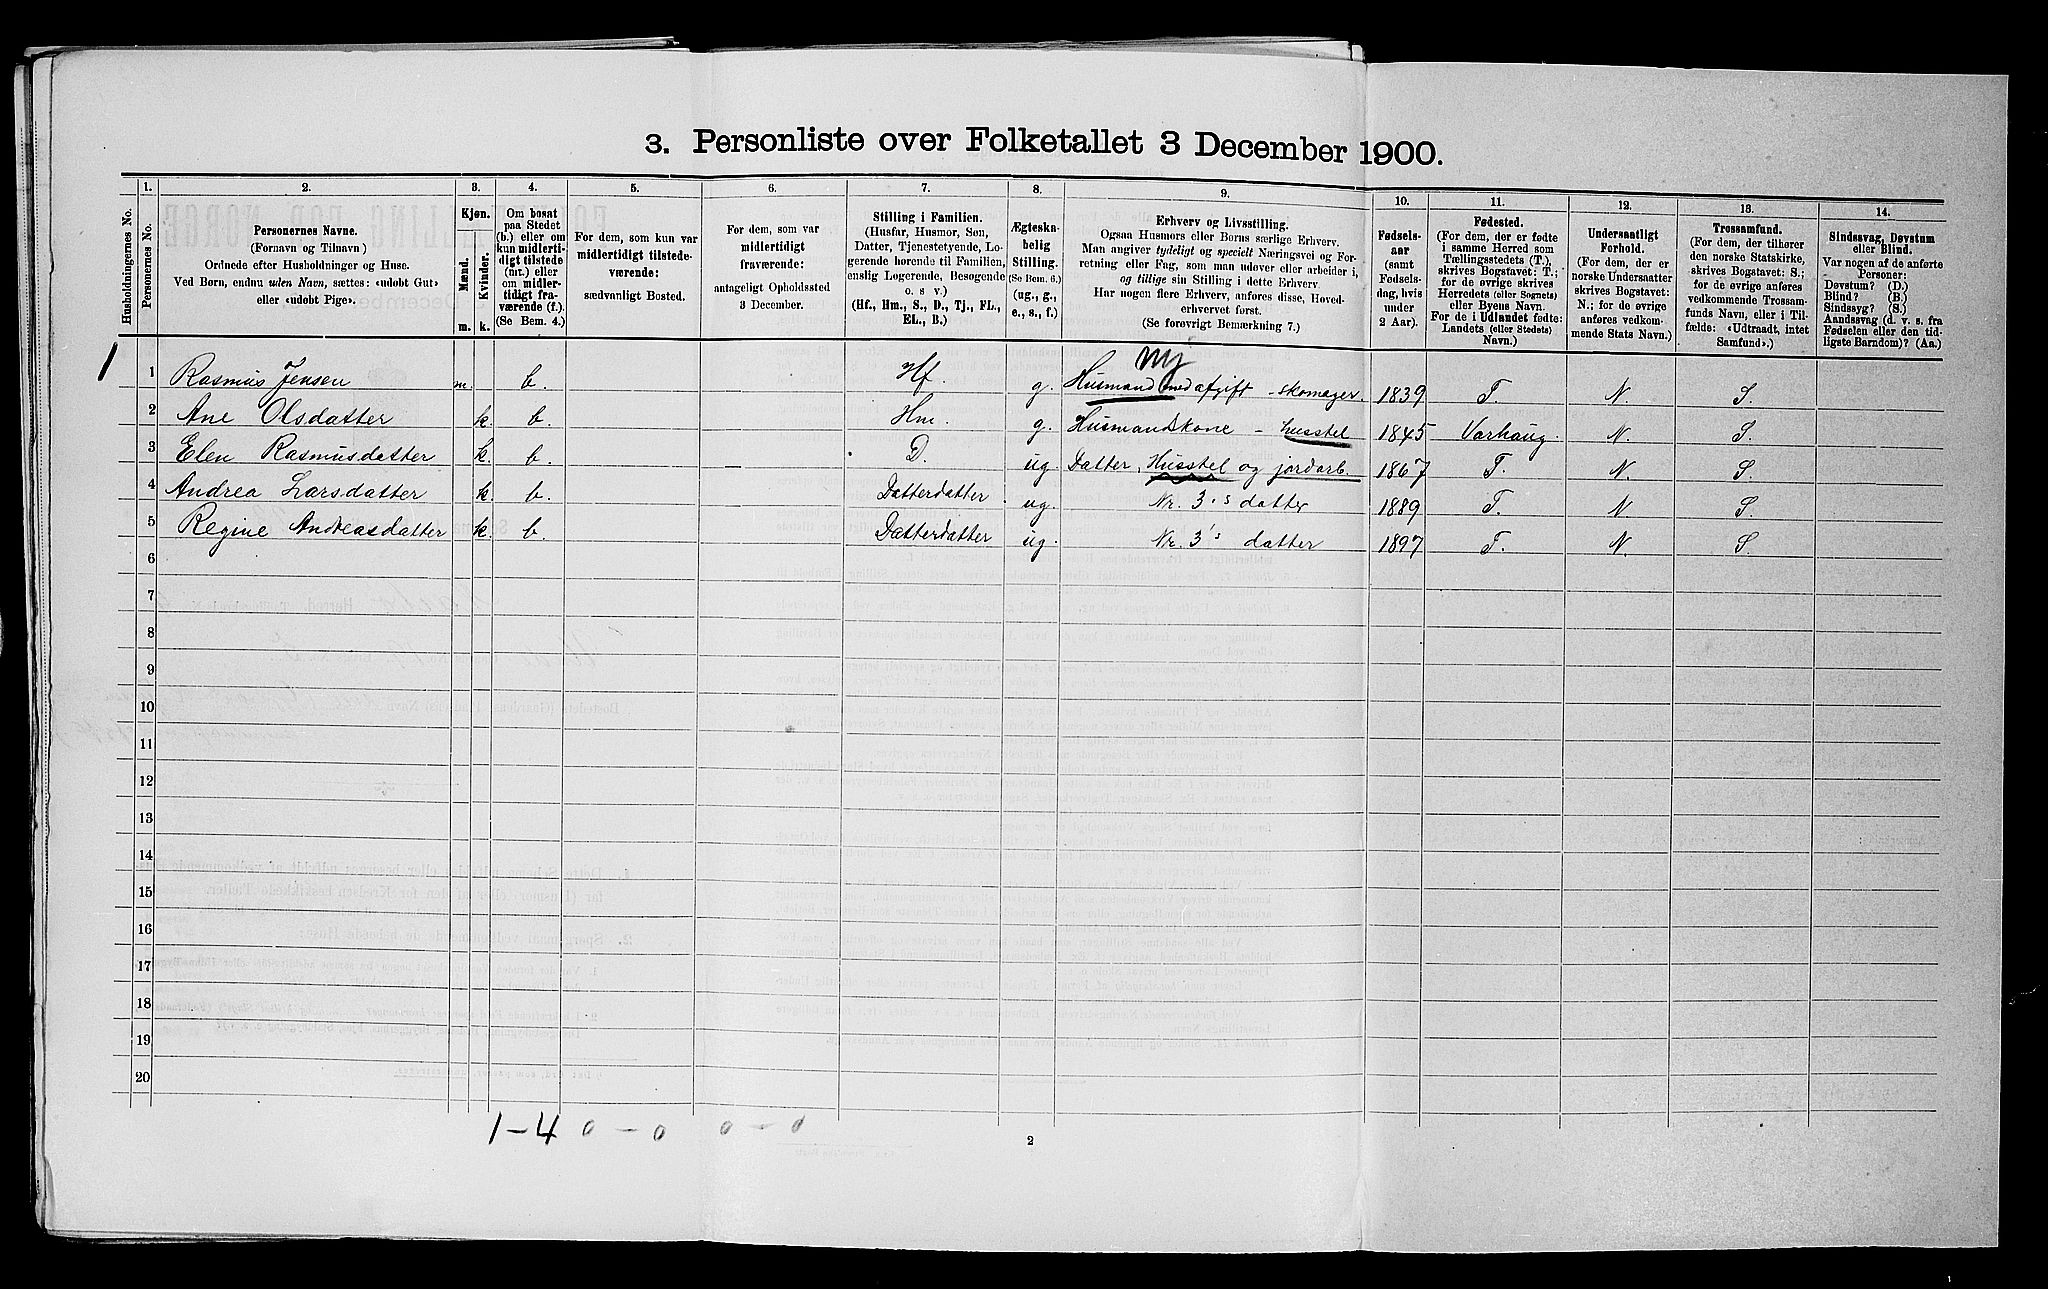 3. Personliste over Folketallet 3 December 1900.
Husholdningernes No.
1.
Personernes No.
2.
Personernes Navne.
(Fornavn og Tilnavn)
Ordnede efter Husholdninger og Huse.
Ved Børn, endnu uden Navn, sættes: «udobt Gut»
eller «udobt Pige».
3.
Kjøn.
Mænd.
Kvinder.
m.
k.
4.
Om bosat
paa Stedet
(b.) eller om
kun midlerti-
digt tilstede
(mt.) eller
om midler-
tidigt fra-
værende (f.).
(Se Bem. 4.)
5.
For dem, som kun var
midlertidigt tilstede-
værende:
sædvanligt Bosted.
6.
For dem, som var
midlertidigt
fraværende:
antageligt Opholdssted
3 December.
7.
Stilling i Familien.
(Husfar, Husmor, Søn,
Datter, Tjenestetyende, Lo-
gerende hørende til Familien,
enslig Logerende, Besøgende
o. s v.)
(Hf., Hm., S., D., Tj., FL.,
EL., B.)
8.
Ægteska-
belig
Stilling.
(Se Bem. 6.)
(ug., g.,
e., s., f.)
9.
Erhverv og Livsstilling.
Ogsaa Husmors eller Børns særlige Erhverv.
Man angiver tydeligt og specielt Næringsvei og For-
retning eller Fag, som man udøver eller arbeider i,
og tillige sin Stilling i dette Erhverv.
Har nogen flere Erhverv, anføres disse, Hoved-
erhvervet først.
(Se forøvrigt Bemærkning 7.)
10.
Fødsels-
aar
(samt
Fødsels-
dag, hvis
under
2 Aar).
11.
Fødested.
(For dem, der er fødte
i samme Herred som
Tællingsstedets (T.),
skrives Bogstavet: T.;
for de øvrige skrives
Herredets (eller Sognets)
eller Byens Navn.
For de i Udlandet fødte:
Landets (eller Stedets)
Navn.)
12.
Undersaatligt
Forhold.
(For dem, der er
norske Undersaatter
skrives Bogstavet:
N.; for de øvrige
anføres vedkom-
mende Stats Navn.)
13.
Trossamfund.
(For dem, der tilhører
den norske Statskirke,
skrives Bogstavet: S.;
for de øvrige anføres
vedkommende Trossam-
funds Navn, eller i Til-
fælde: «Udtraadt, intet
Samfund».)
14.
Sindssvag, Døvstum
eller Blind.
Var nogen af de anførte
Personer:
Døvstum? (D.)
Blind? (B.)
Sindssyg? (S.)
Aandssvag (d. v. s. fra
Fødselen eller den tid-
ligste Barndom)? (Aa.)
Nij
1 1 Rasmus Jensen m. b. Hf. g. Husmand med afgift - skomager. 1839 T. N. S.
2 Ane Olsdatter k. b. Hm. g. Husmandskone - husstel 1845 Varhaug. N. S.
3 Elen Rasmusdatter k. b. D. ug. Datter, Husstel og jordarb. 1867 T. N. S.
4 Andrea Larsdatter k. b. Datterdatter ug. Nr. 3's datter 1889 T. N S.
5 Regine Andreasdatter k. b. Datterdatter ug. Nr. 3's datter 1897 T. N. S.
6
7
8
9
10
11
12
13
14
15
16
17
18
19
20
1-4 0-0 0-0
2